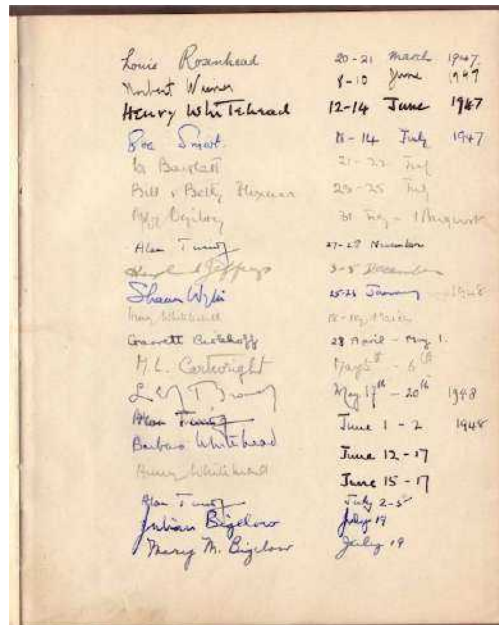 Louis Rosenhead 20-21 March 1947.
Norbert Wiener 8-10 June 1947
Henry Whitehead 12-14 June 1947
Smart. 14 July 1947
Bartlett 21-22 July
Bill & Betty 23-25 July
Ogilvy 31 July - 1 August
Alan Turing 27-29 November
Jeffreys 3-5 December
Shaun Wylie 25-26 January 1948
Henry Whitehead March
Garrett Birkhoff 28 April - May 1.
M.L. Cartwright May 5th - 6th
May 17th - 20th 1948
Alan Turing June 1 - 2 1948
Barbara Whitehead June 12-17
Henry Whitehead June 15-17
Alan Turing July 2-5
Julian Bigelow July 19
Mary M. Bigelow July 19